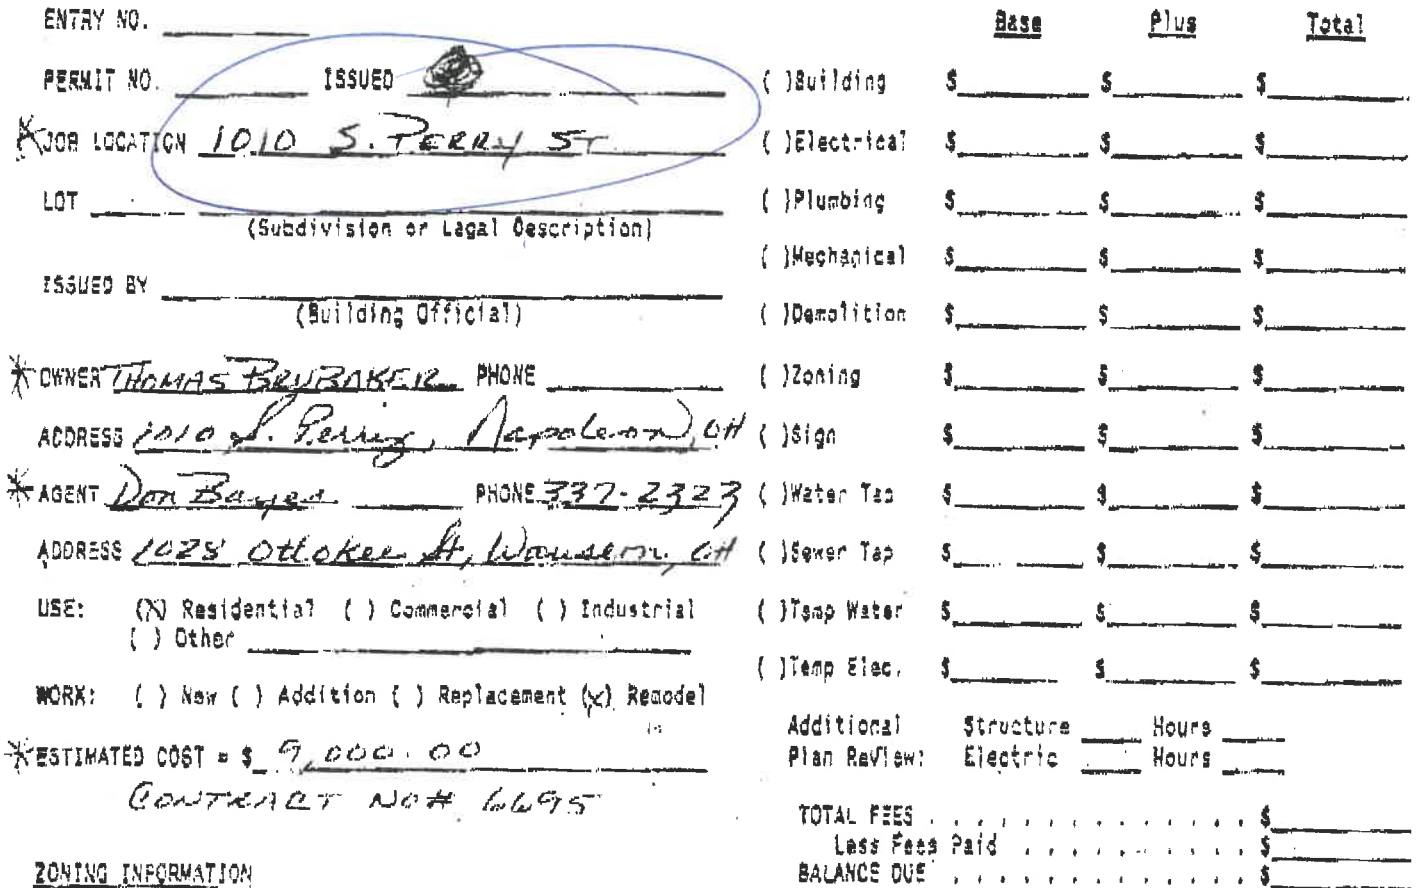 ENTRY NO.
PERMIT NO. ISSUED
JOB LOCATION 1010 S. PERRY ST
LOT
(Subdivision or Legal Description)
ISSUED BY
(Building Official)
* OWNER THOMAS BRUBAKER PHONE
ADDRESS 1010 S. Perry, Napoleon, OH
* AGENT Don Bayes PHONE 337-2323
ADDRESS 1028 Ottokee St, Wauseon, OH
USE: (X) Residential ( ) Commercial ( ) Industrial
( ) Other
WORK: ( ) New ( ) Addition ( ) Replacement (X) Remodel
* ESTIMATED COST = $ 9,000.00
CONTRACT NO# 6695
ZONING INFORMATION
Base Plus Total
( )Building $ $ $
( )Electrical $ $ $
( )Plumbing $ $ $
( )Mechanical $ $ $
( )Demolition $ $ $
( )Zoning $ $ $
( )Sign $ $ $
( )Water Tap $ $ $
( )Sewer Tap $ $ $
( )Temp Water $ $ $
( )Temp Elec. $ $ $
Additional Structure Hours
Plan Review: Electric Hours
TOTAL FEES . . . . . . . . . . . . . . $
Less Fees Paid . . . . . . . . . . $
BALANCE DUE . . . . . . . . . . . . . $